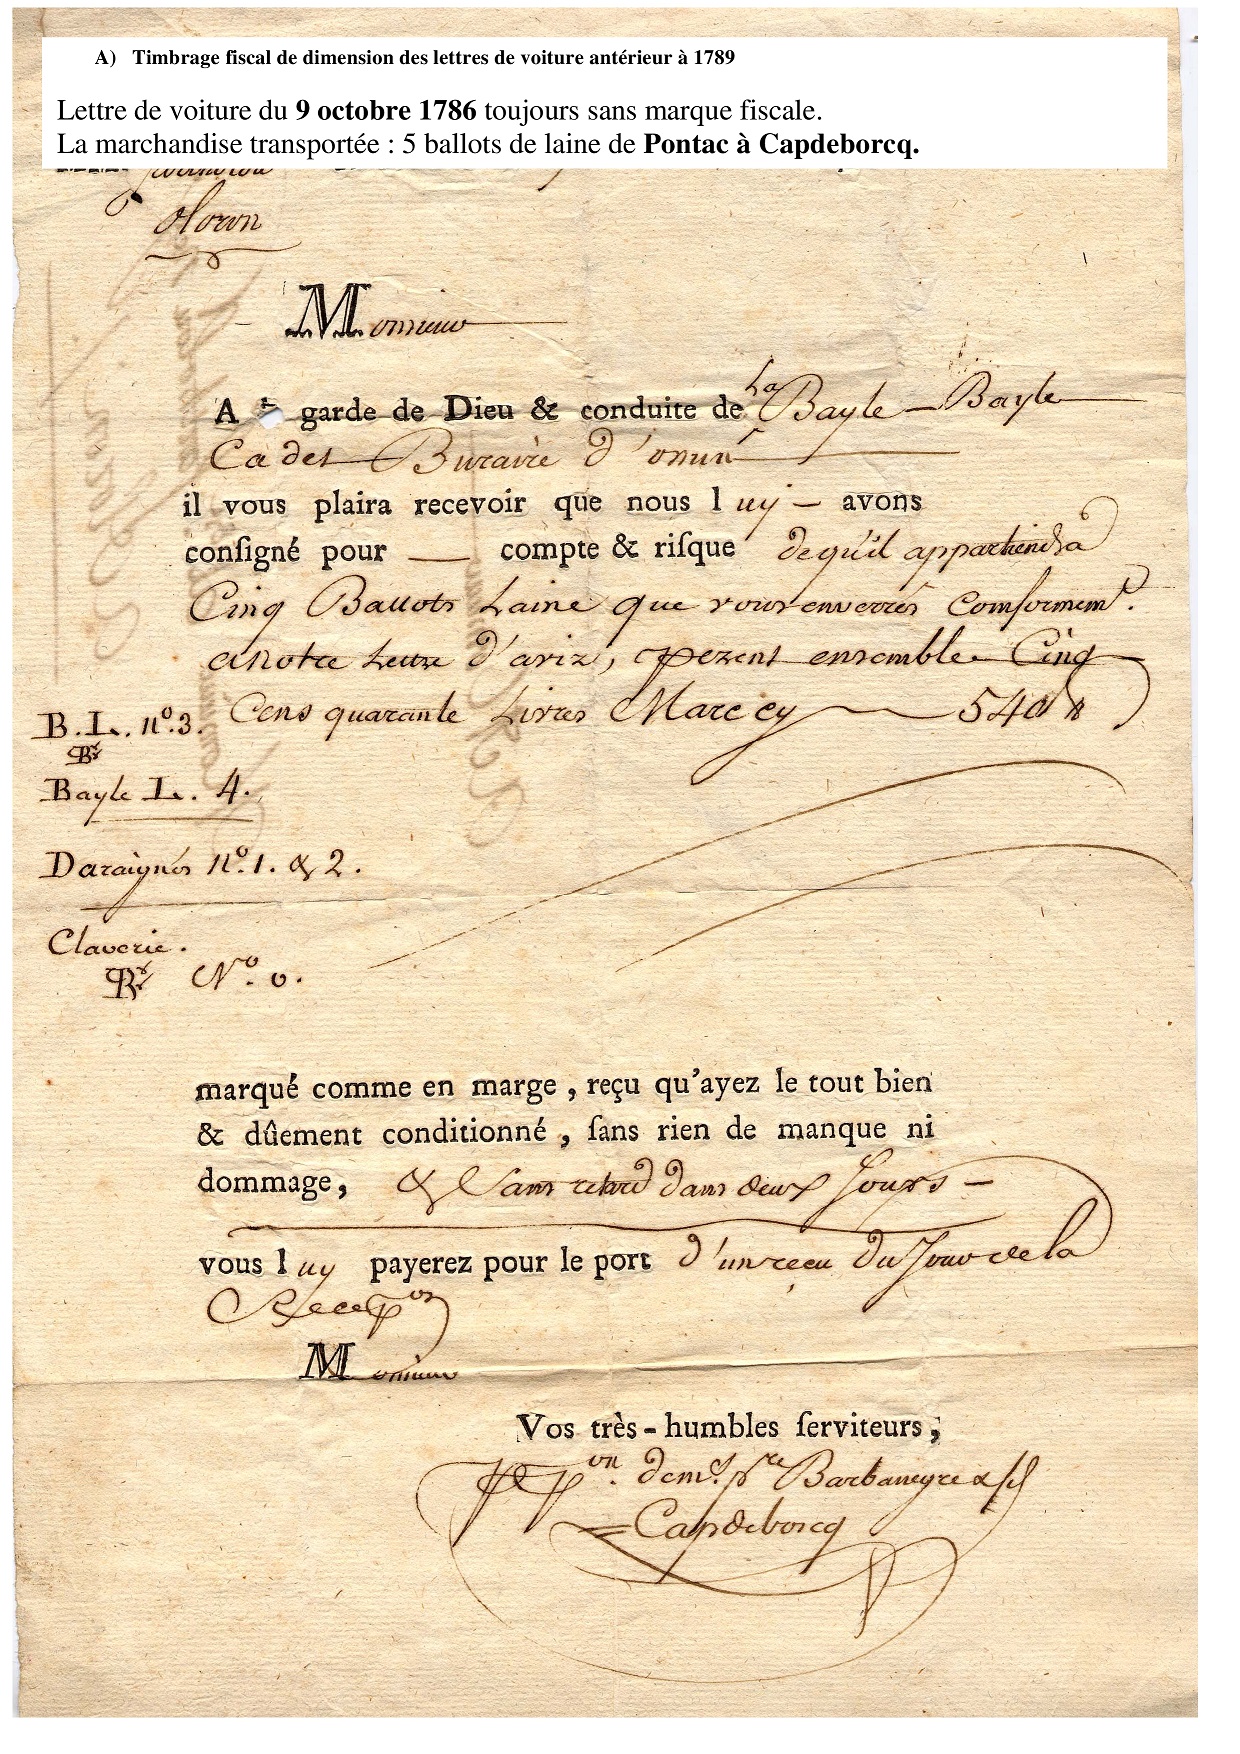 A) Timbrage fiscal de dimension des lettres de voiture antérieur à 1789
Lettre de voiture du 9 octobre 1786 toujours sans marque fiscale.
La marchandise transportée : 5 ballots de laine de Pontac à Capdeborcq.
oloron
Monsieur
A la garde de Dieu & conduite de La Bayle – Bayle
Cadet
il vous plaira recevoir que nous luy – avons
conſigné pour — compte & riſque de qu'il appartiendra
Cinq Ballots Laine que vous enverrés comformemt.
a notre Lettre d'aviz, pezent ensemble Cinq
B.L. nº.3. Cens quarante Livres Marc cy — 540 ₶
Bayle L. 4.
Daraignés nº.1. & 2.
Claverie.
Nº. 0.
marqué comme en marge, reçu qu'ayez le tout bien
& dûement conditionné, ſans rien de manque ni
dommage, & Sans retard dans deux Jours –
vous luy payerez pour le port d'un recu du Jour de la
Recepon
Monsieur
Vos très-humbles ſerviteurs,
pre Barbaneyre & fils
Capdeborcq